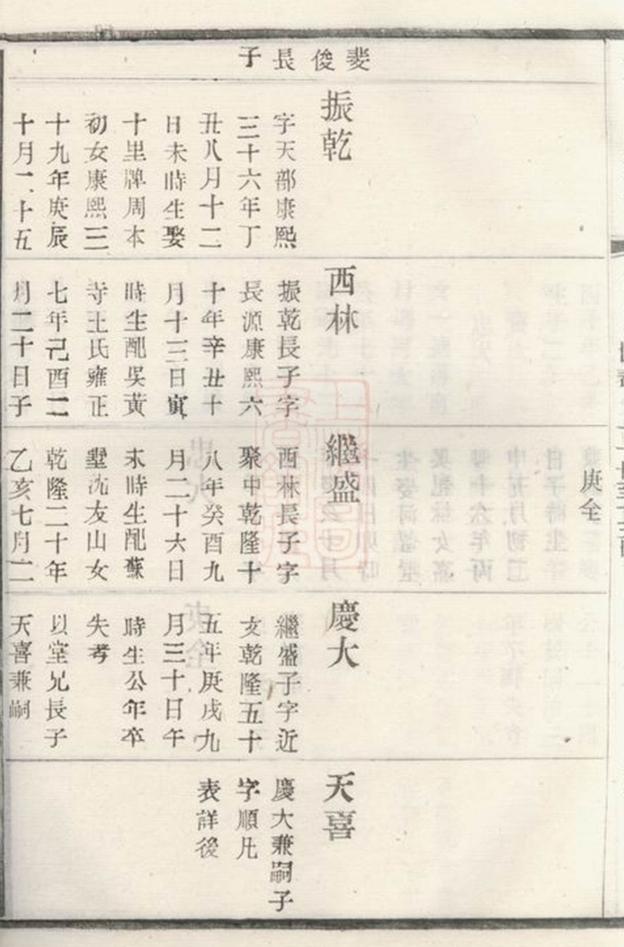 斐俊長子
振乾
字天部康熙
三十六年丁
丑八月十二
日未時生娶
十里牌周本
初女康熙三
十九年庚辰
十月二十五
西林
振乾長子字
長源康熙六
十年辛丑十
月十三日寅
時生配吳黃
寺王氏雍正
七年己酉二
月二十日子
繼盛
西林長子字
聚中乾隆十
八年癸酉九
月二十六日
未時生配蘇
墅沈友山女
乾隆二十年
乙亥七月二
慶大
繼盛子字近
友乾隆五十
五年庚戌九
月三十日午
時生公年卒
失考
以堂兄長子
天喜兼嗣
天喜
慶大兼嗣子
字順凡
表詳後
庚全